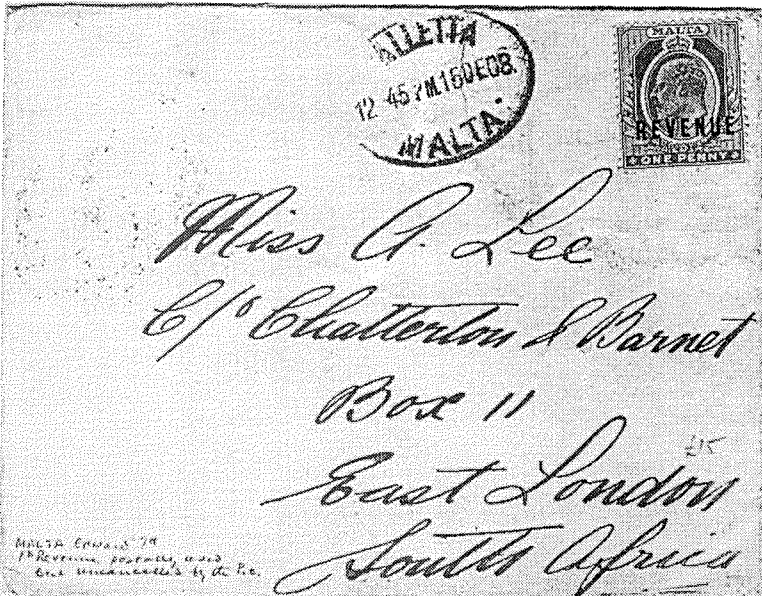 ALLETTA
12 45 PM 16 DE 08.
MALTA.
MALTA
REVENUE
ONE PENNY
Miss A. Lee
C/o Chatterton & Barnet
Box 11
East London
South Africa
£15
MALTA
1d Revenue postally used
but uncancelled by the P.O.